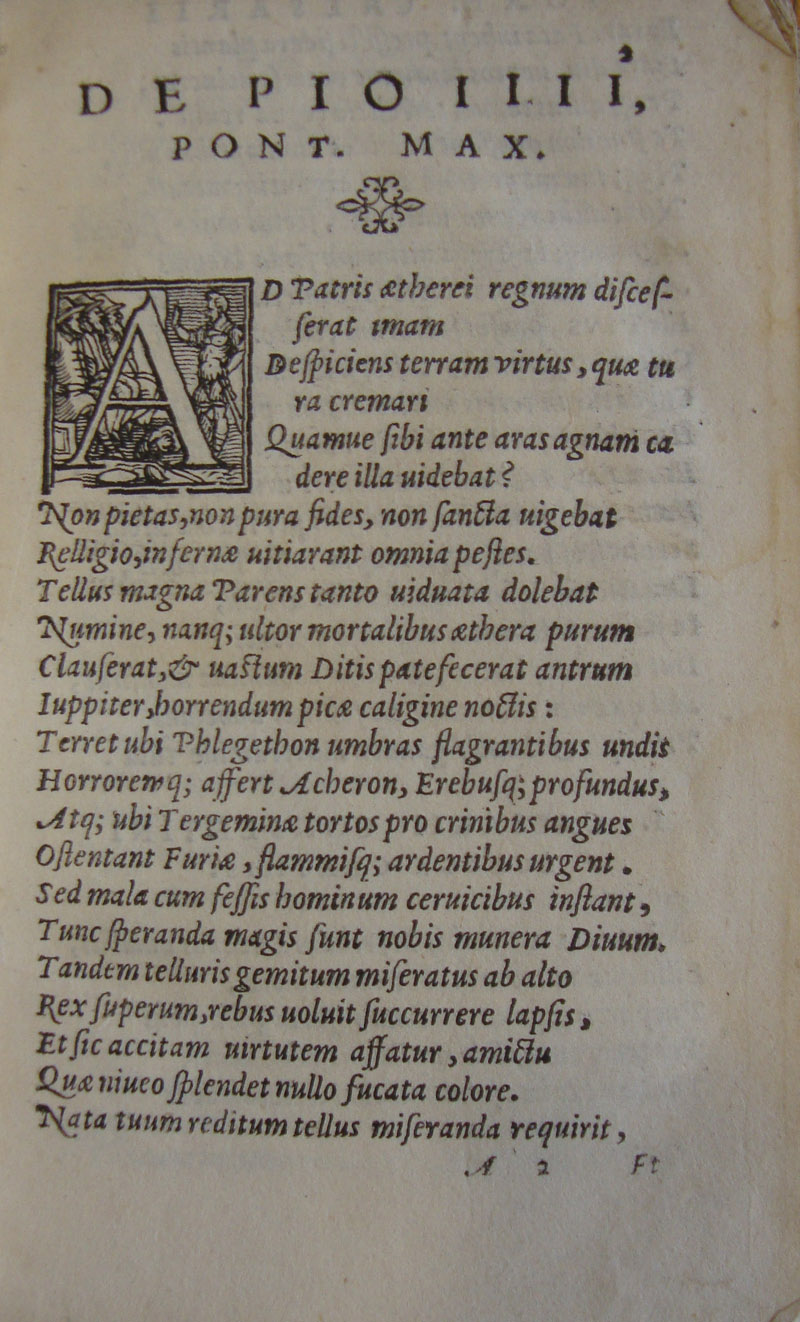 2
DE PIO IIII,
PONT. MAX.
AD Patris ætherei regnum diſceſ-
ſerat imam
Deſpiciens terram virtus, quæ tu
ra cremari
Quamue ſibi ante aras agnam ca
dere illa uidebat?
Non pietas, non pura fides, non ſancta uigebat
Relligio, infernæ uitiarant omnia peſtes.
Tellus magna Parens tanto uiduata dolebat
Numine, nanq; ultor mortalibus æthera purum
Clauſerat, & uaſtum Ditis patefecerat antrum
Iuppiter, horrendum picæ caligine noctis:
Terret ubi Phlegethon umbras flagrantibus undis
Horroremq; affert Acheron, Erebuſq; profundus,
Atq; ubi Tergeminæ tortos pro crinibus angues
Oſtentant Furiæ, flammiſq; ardentibus urgent.
Sed mala cum feſſis hominum ceruicibus inſtant,
Tunc ſperanda magis ſunt nobis munera Diuum.
Tandem telluris gemitum miſeratus ab alto
Rex ſuperum, rebus uoluit ſuccurrere lapſis,
Et ſic accitam uirtutem affatur, amictu
Quæ niueo ſplendet nullo fucata colore.
Nata tuum reditum tellus miſeranda requirit,
A 2 Et